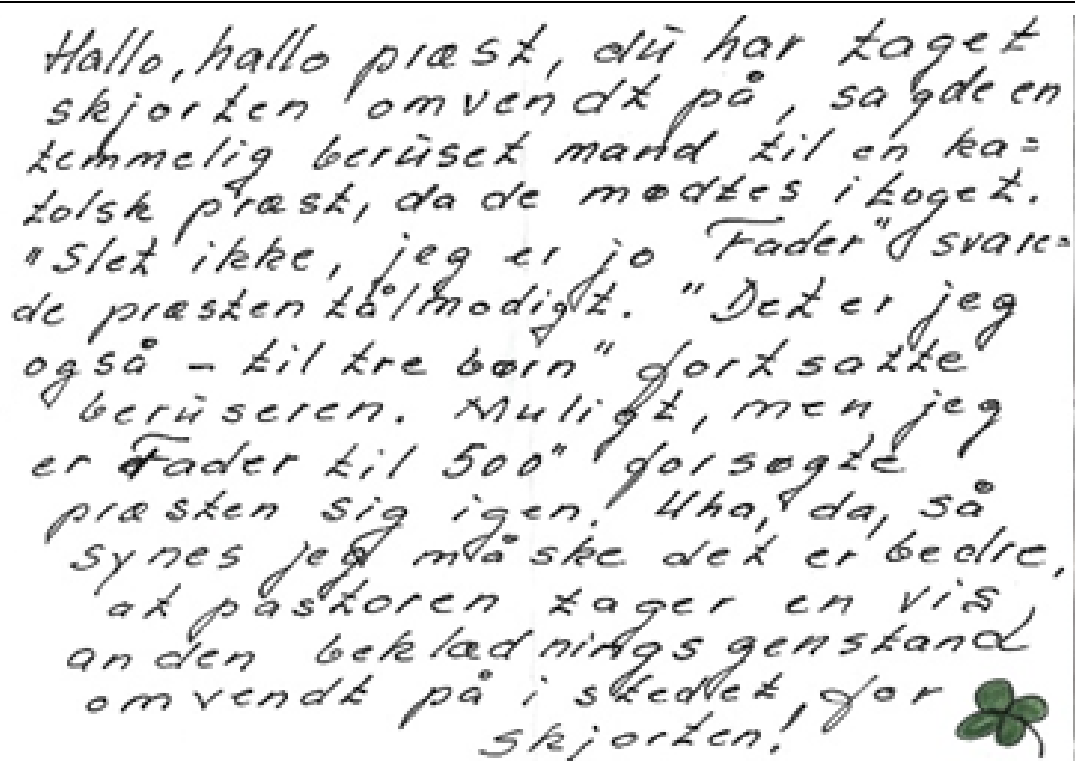 Hallo, hallo præst, dú har taget
skjorten omvendt på, sagde en
temmelig berúset mand til en ka=
tolsk præst, da de mødtes i toget.
"Slet ikke, jeg er jo Fader" svare=
de præsten tålmodigt. "Det er jeg
også - til tre børn" fortsatte
berúseren. Muligt, men jeg
er Fader til 500" forsøgte
præsten sig igen. Uha, da, så
synes jeg måske det er bedre,
at pastoren tager en vis,
anden beklædningsgenstand
omvendt på i stedet for
skjorten!